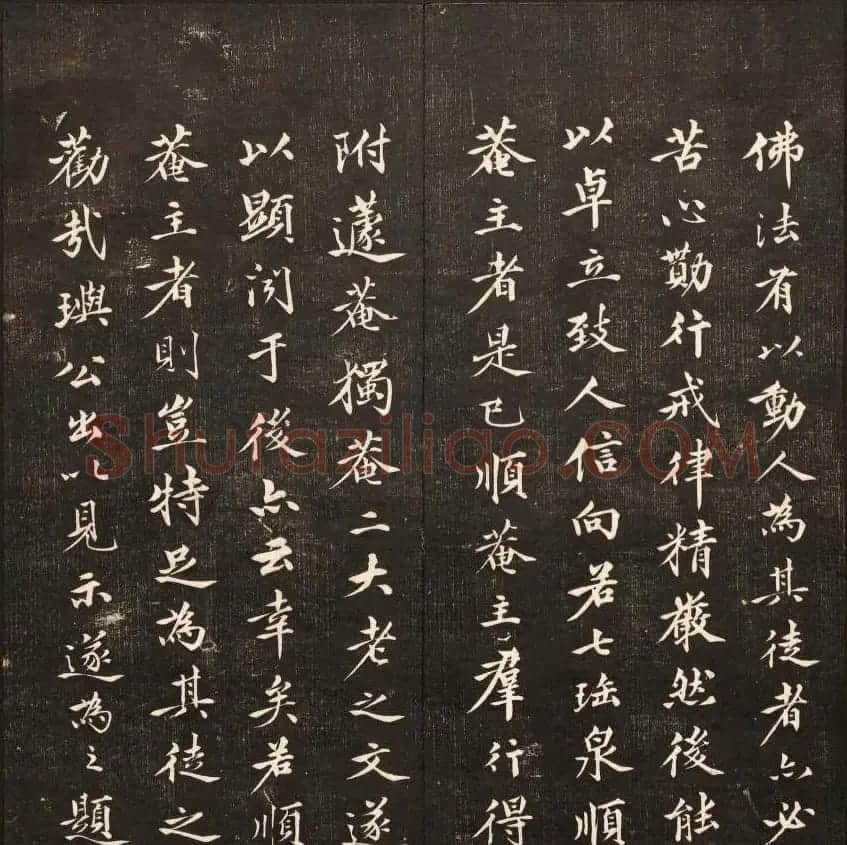 佛法有以動人為其徒者亦必
苦心勤行戒律精嚴然後能
以卓立致人信向若七瑤泉順
菴主者是已順菴主羣行得
附蘧菴獨菴二大老之文遂
以顯閃于後亦云幸矣若順
菴主者則豈特足為其徒之
勸哉璵公出以見示遂為之題
Shufaziliao.COM